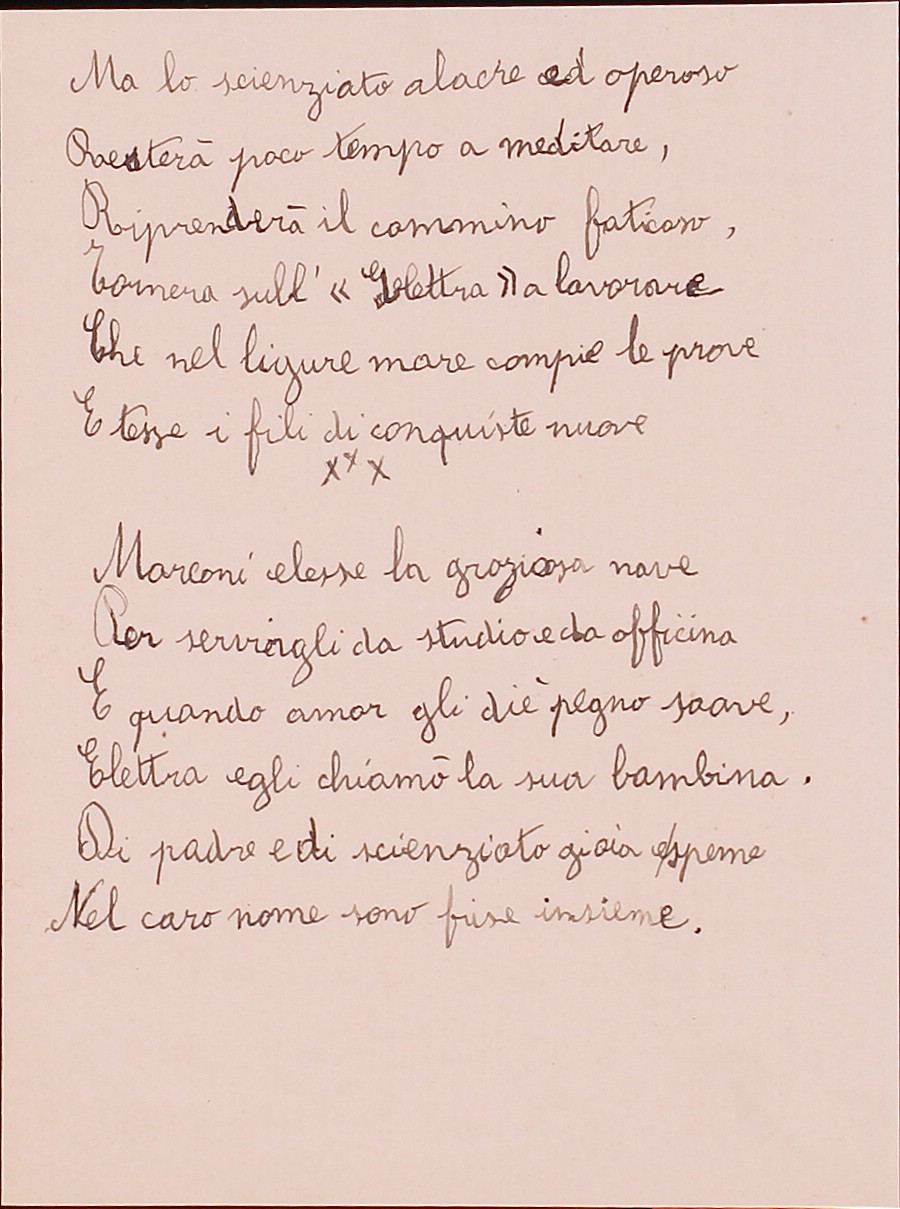 Ma lo scienziato alacre ed operoso
Resterà poco tempo a meditare,
Riprenderà il cammino faticoso,
Tornera sull' « Elettra » a lavorare
Che nel ligure mare compie le prove
E tesse i fili di conquiste nuove
x x x
Marconi elesse la graziosa nave
Per servirgli da studio e da officina
E quando amor gli diè pegno soave,
Elettra egli chiamò la sua bambina.
Di padre e di scienziato gioia e speme
Nel caro nome sono fuse insieme.